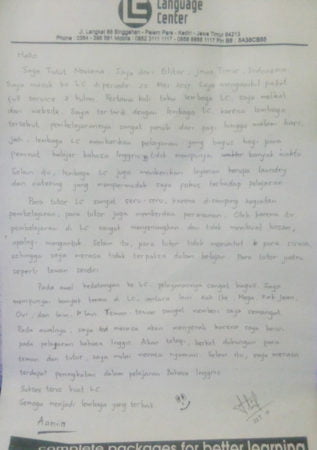 Language
Center
Jl. Langkat 88 Singgahan - Palem - Kediri - Jawa Timur 64213
Hallo
Saya Tutut Novtiana. Saya dari Blitar, Jawa Timur, Indonesia.
Saya masuk ke LC periode 25 Mei 2017. Saya mengambil paket
full service 2 bulan. Pertama kali tahu lembaga LC, saya melihat
dari website. Saya tertarik dengan lembaga LC, karena lembaga
tersebut, pembelajarannya sangat penuh dari pagi hingga malam hari,
jadi, lembaga LC memberikan pelayanan yang bagus bagi para
peminat belajar bahasa Inggris tidak mempunyai banyak waktu
Selain itu, lembaga LC juga memberikan layanan berupa laundry
dan catering yang mempermudah saya fokus terhadap pelajaran
Para tutor LC sangat seru-seru, karena disamping kegiatan
pembelajaran, para tutor juga memberikan permainan. Oleh karena itu
pembelajaran di LC sangat menyenangkan dan tidak membuat bosan,
apalagi mengantuk. Selain itu, para tutor tidak menuntut para siswa,
sehingga saya merasa tidak terpaksa dalam belajar. Para tutor
seperti teman sendiri
Pada awal kedatangan ke LC, pelayanannya sangat bagus. Saya
mempunyai banyak teman di LC, antara lain
dan lain-lain. Teman-teman sangat memberi saya semangat.
Pada awalnya, saya merasa akan menyerah karena saya
pada pelajaran bahasa Inggris. Akan tetapi, berkat dukungan para
teman dan tutor, saya mulai merasa nyaman. Selain itu, saya merasa
terdapat peningkatan dalam pelajaran Bahasa Inggris
Sukses terus buat LC
Semoga menjadi lembaga yang terbaik
complete packages for better learning